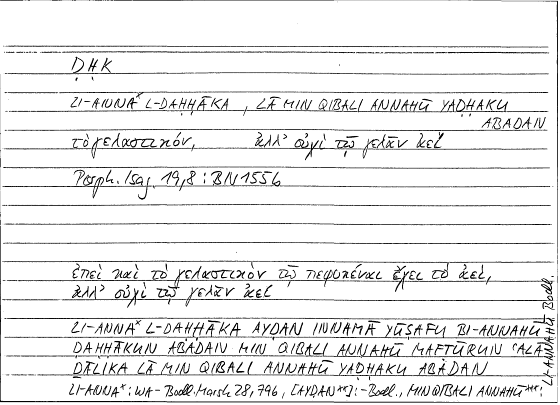 ḌḤK
LI-ANNA* L-ḌAḤḤĀKA, LĀ MIN QIBALI ANNAHŪ YAḌḤAKU
ABADAN
τὸ γελαστικόν, ἀλλ' οὐχὶ τῷ γελᾶν ἀεί
Porph. Isag. 19,8 : BN 155b
ἐπεὶ καὶ τὸ γελαστικὸν τῷ πεφυκέναι ἔχει τὸ ἀεί,
ἀλλ' οὐχὶ τῷ γελᾶν ἀεί
LI-ANNA* L-ḌAḤḤĀKA AYḌAN INNAMĀ YŪṢAFU BI-ANNAHŪ
ḌAḤḤĀKUN ABADAN MIN QIBALI ANNAHŪ MAFṬŪRUN ʿALĀ
ḎĀLIKA LĀ MIN QIBALI ANNAHŪ YAḌḤAKU ABADAN
LI-ANNA* : WA- Bodl. Marsh 28, 79b, [AYḌAN**] : - Bodl., MIN QIBALI ANNAHŪ*** :
LI-ANNAHŪ Bodl.